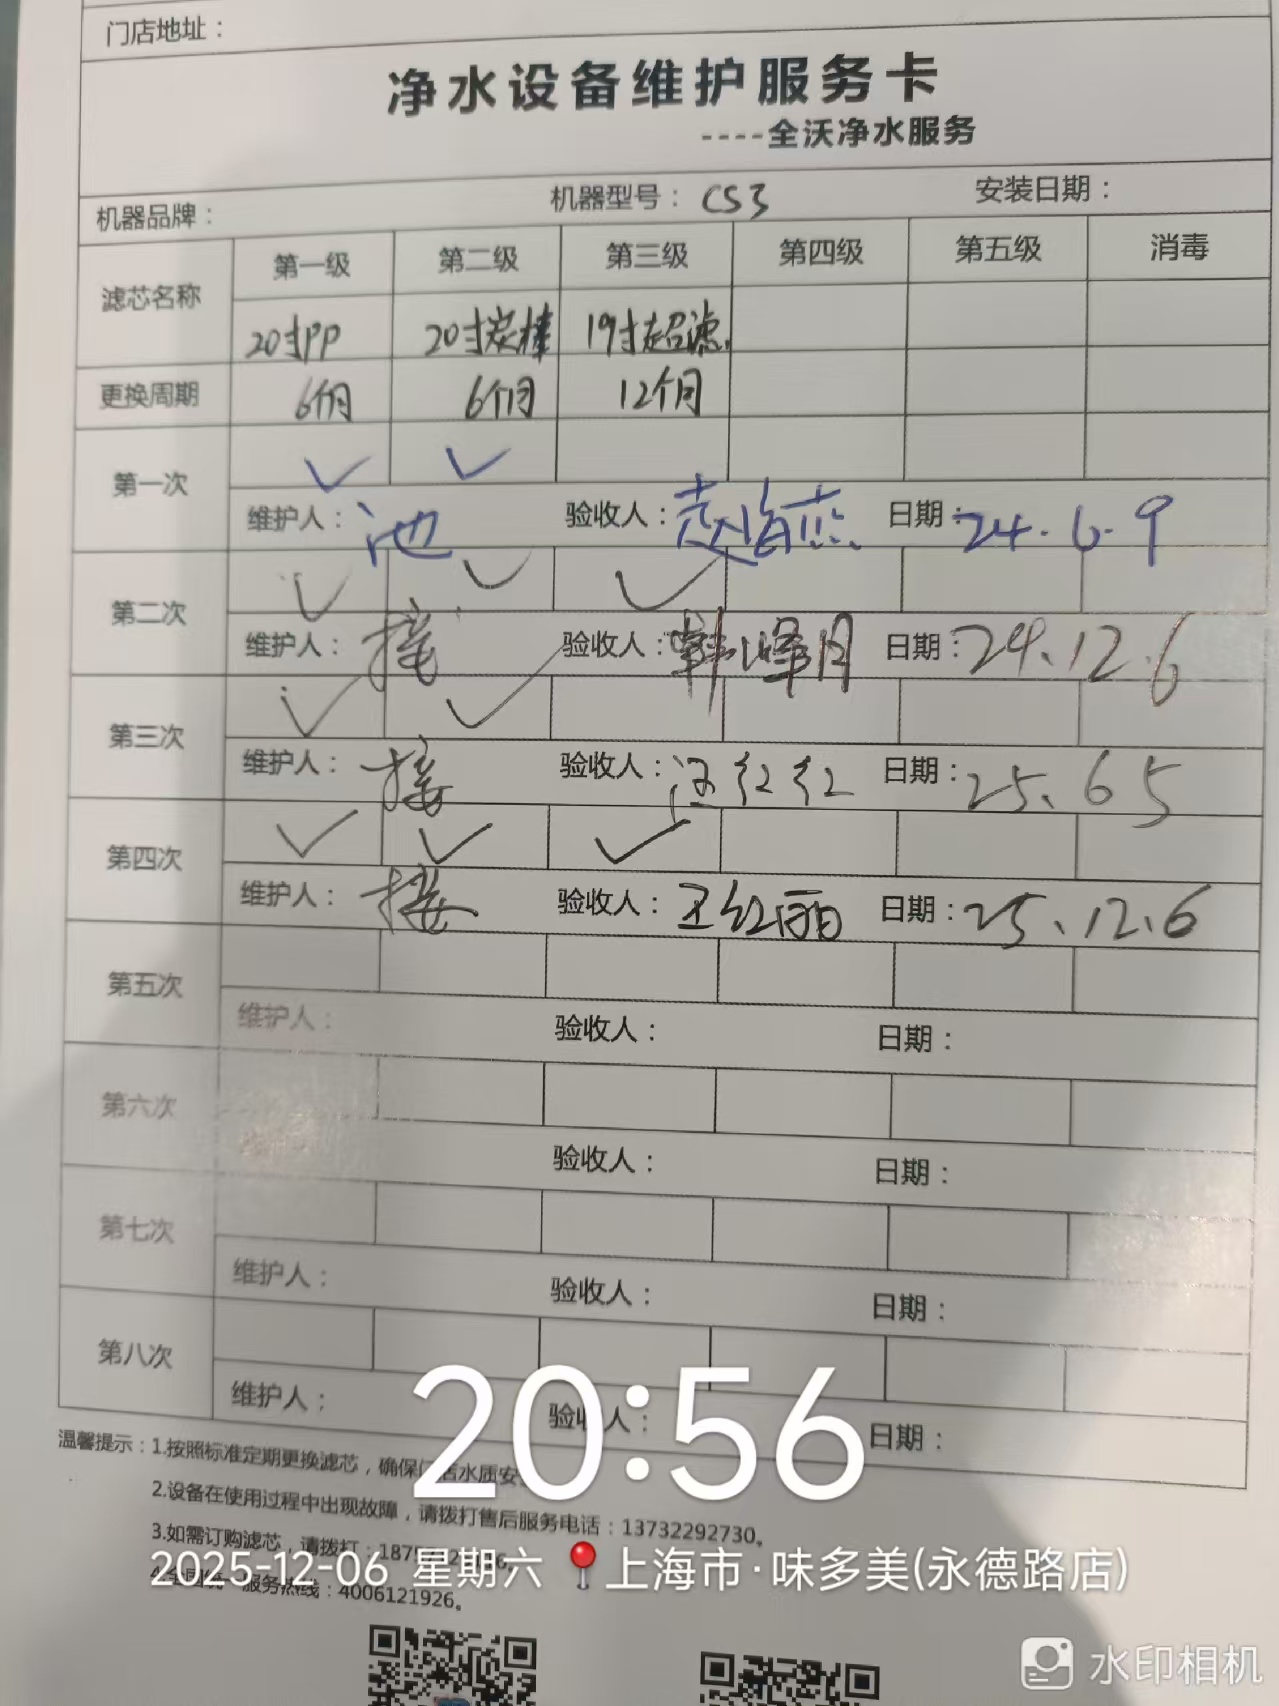 门店地址：
净水设备维护服务卡
----全沃净水服务
机器品牌： 机器型号：CS3 安装日期：
滤芯名称 第一级 第二级 第三级 第四级 第五级 消毒
20寸PP 20寸炭棒 19寸超滤
更换周期 6个月 6个月 12个月
第一次 ✓ ✓
维护人：池 验收人：赵海燕 日期：24.6.9
第二次 ✓ ✓ ✓
维护人：接 验收人：韩峰月 日期：24.12.6
第三次 ✓ ✓
维护人：接 验收人：汪红红 日期：25.6 5
第四次 ✓ ✓ ✓
维护人：接 验收人：王红丽 日期：25.12.6
第五次
维护人： 验收人： 日期：
第六次
验收人： 日期：
第七次
维护人： 验收人： 日期：
第八次
维护人： 验收人： 日期：
20:56
温馨提示：1.按照标准定期更换滤芯，确保门店水质安
2.设备在使用过程中出现故障，请拨打售后服务电话：13732292730。
3.如需订购滤芯，请拨打：187
2025-12-06 星期六 上海市·味多美(永德路店)
服务热线：4006121926。
水印相机